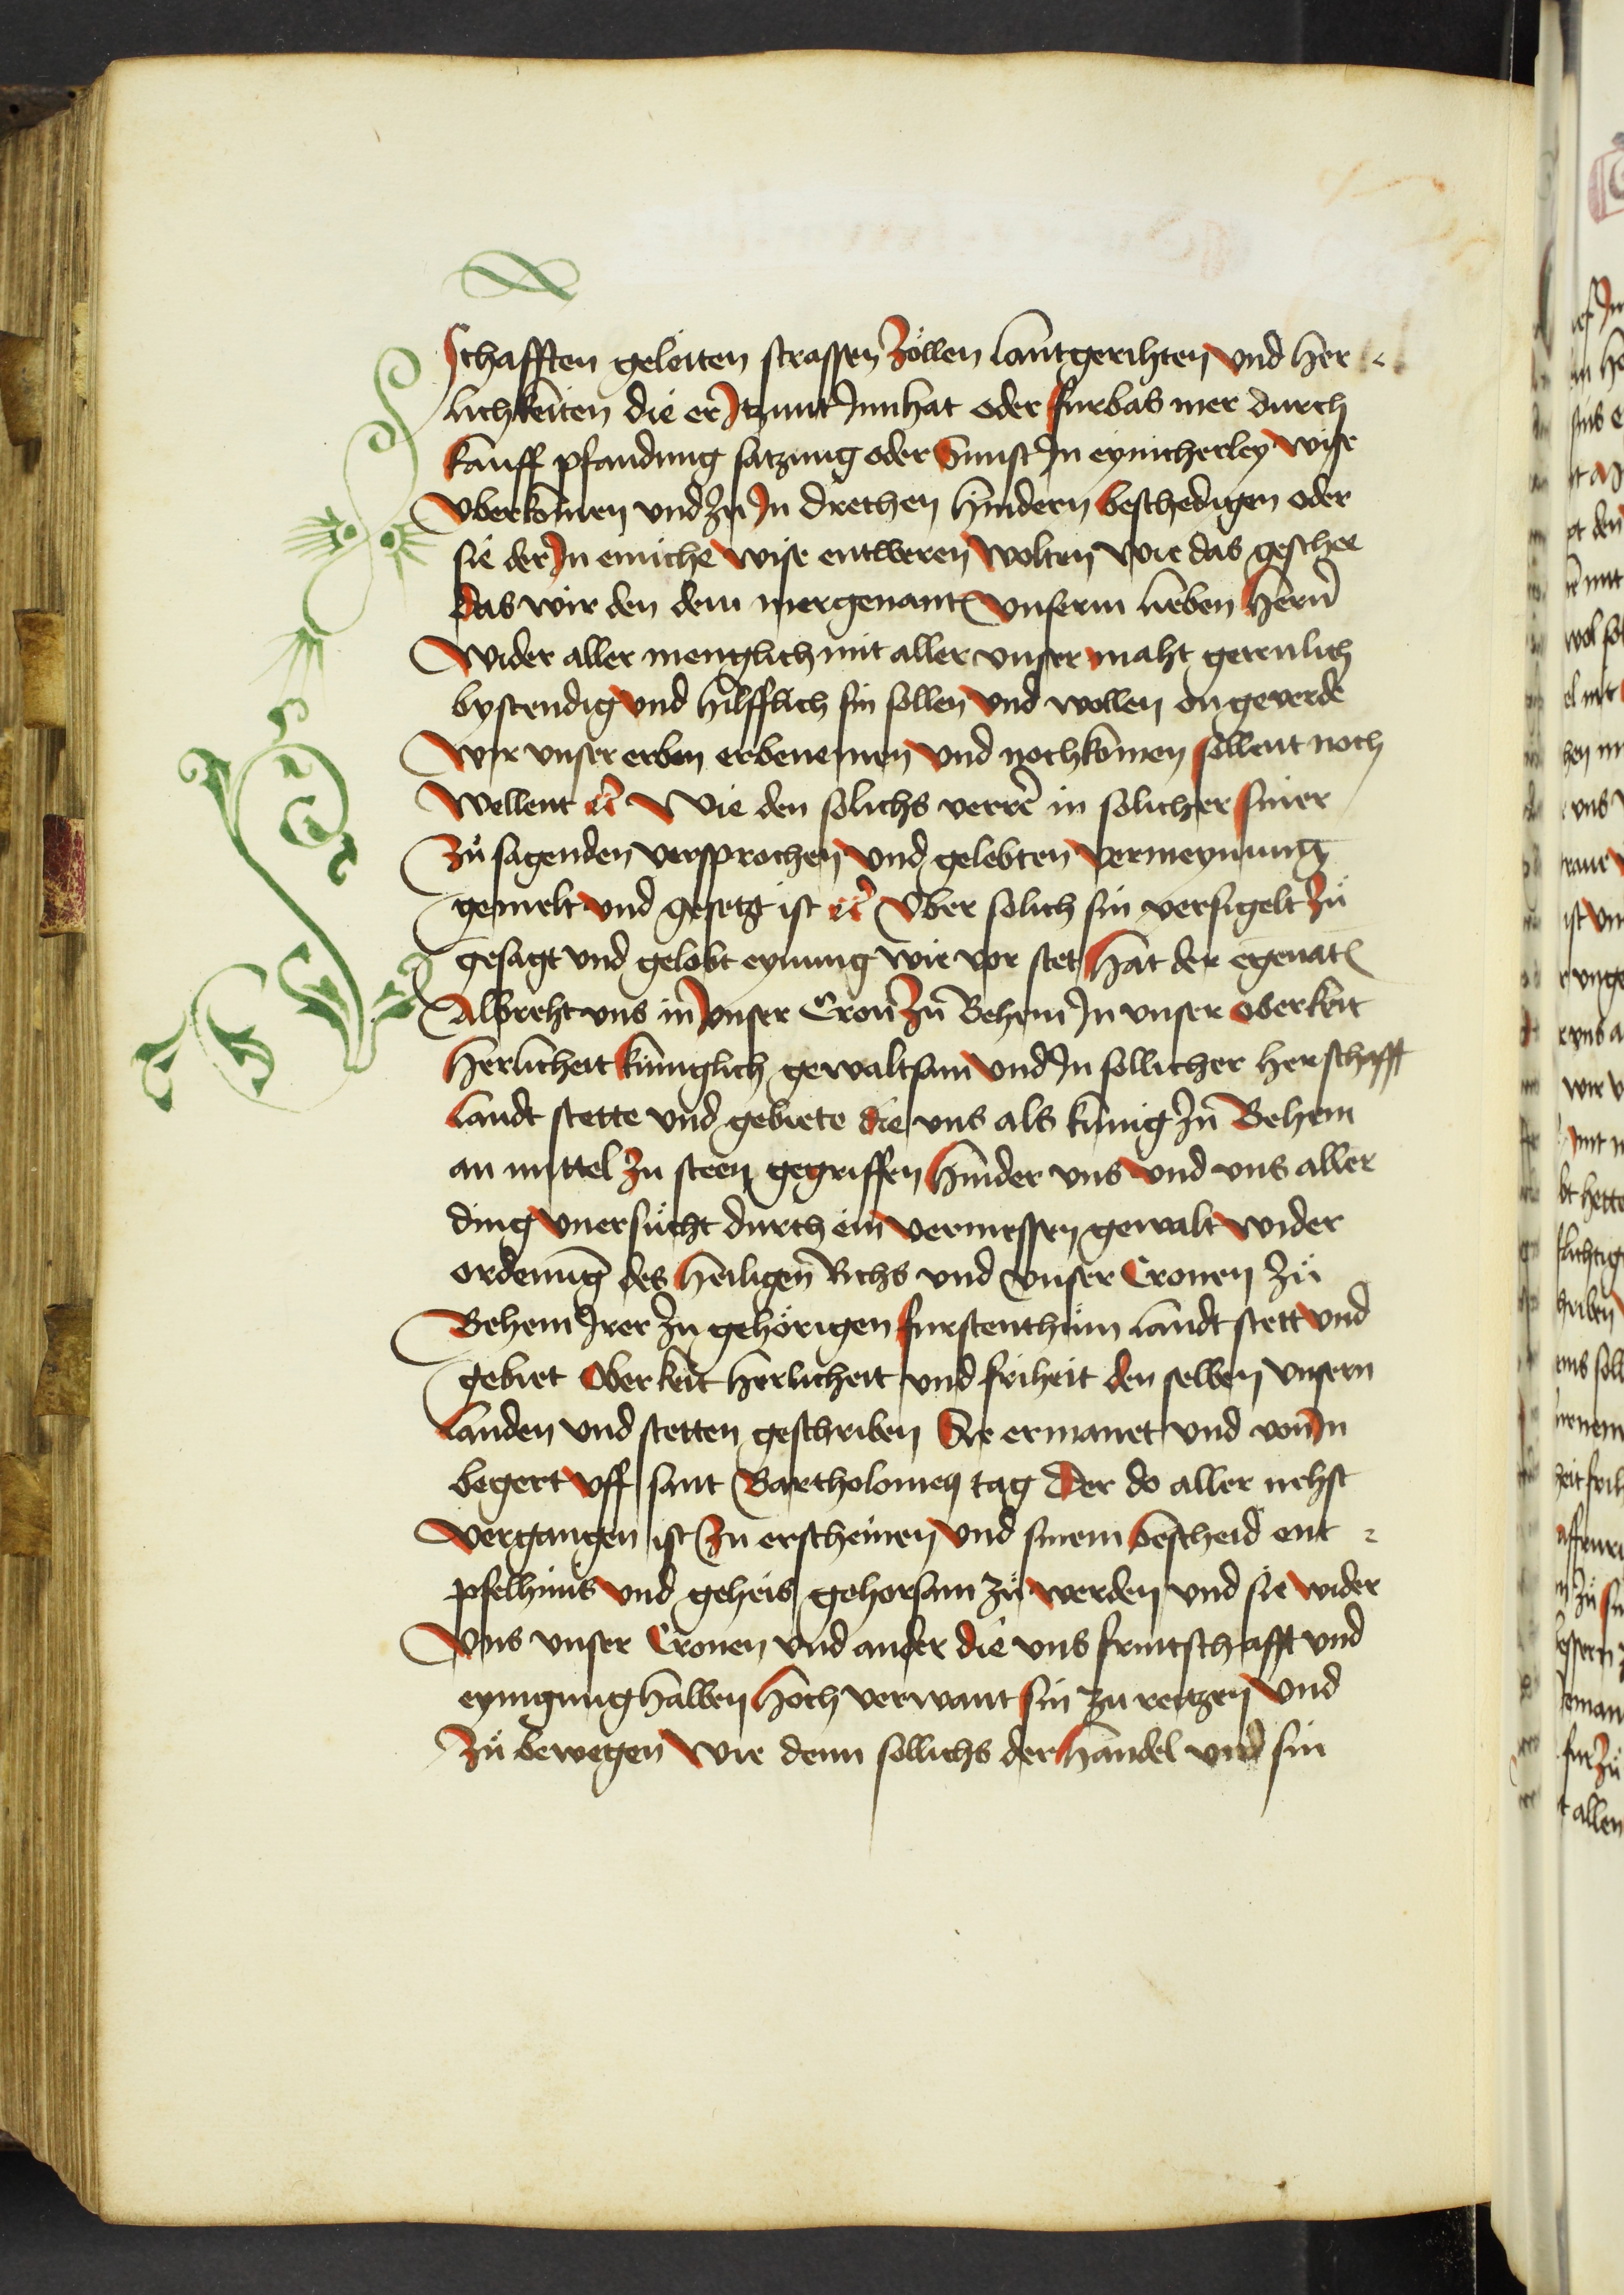 schafften geleiten strassen Zöllen lantgerihten vnd her
lichkeiten die er Itzunt Innhat oder furbas mer durch
kauff pfandung satzung oder Sunst In eynicherley wise
vberkomen vnd Zu In drechen hindern beschedigen oder
sie der In einiche wise entweren wolten wie das geschee
das wir den dem mergenant vnserm lieben hern
wider aller menglich mit aller vnser maht getrulich
bystendig vnd hilfflich sin sollen vnd wollen on geverde
wir vnser erben erbenemen vnd nochkomen sollent noch
wellent etc Wie den solichs verre in solicher siner
Zů sagenden versprochen vnd gelobten vermeynung
gemelt vnd gesetzt ist etc Vber solich sin versigelt Zů
gesagt vnd gelobt eynung wie vor stet hat der egenat
Albreht vns in vnser Cron Zu Behem In vnser oberkeit
herlicheit kuniglich gewaltsam vnd In sollicher herschafft
landt stette vnd gebiete die vns als kunig Zu Behem
an mittel Zu steen gegriffen hinder vns vnd vns aller
ding vnersucht durch ein vermessen gewalt wider
ordenung des heiligen Richs vnd vnser Cronen Zů
Behem Irer Zu gehörigen furstenthům landt stett vnd
gebiet oberkeit herlicheit vnd friheit den selben vnsern
landen vnd stetten geschriben Sie ermanet vnd von In
begert vff sant Bartholomeÿ tag Der do aller nehst
vergangen ist Zu erscheinen vnd sinem bescheid ent
pfelhnis vnd geheis gehorsam Zů werden vnd sie wider
vns vnser Cronen vnd ander die vns fruntschafft vnd
eynigung halben hoch verwant sin Zu reitzen vnd
Zů bewegen wie denn sollichs der handel vnd sin